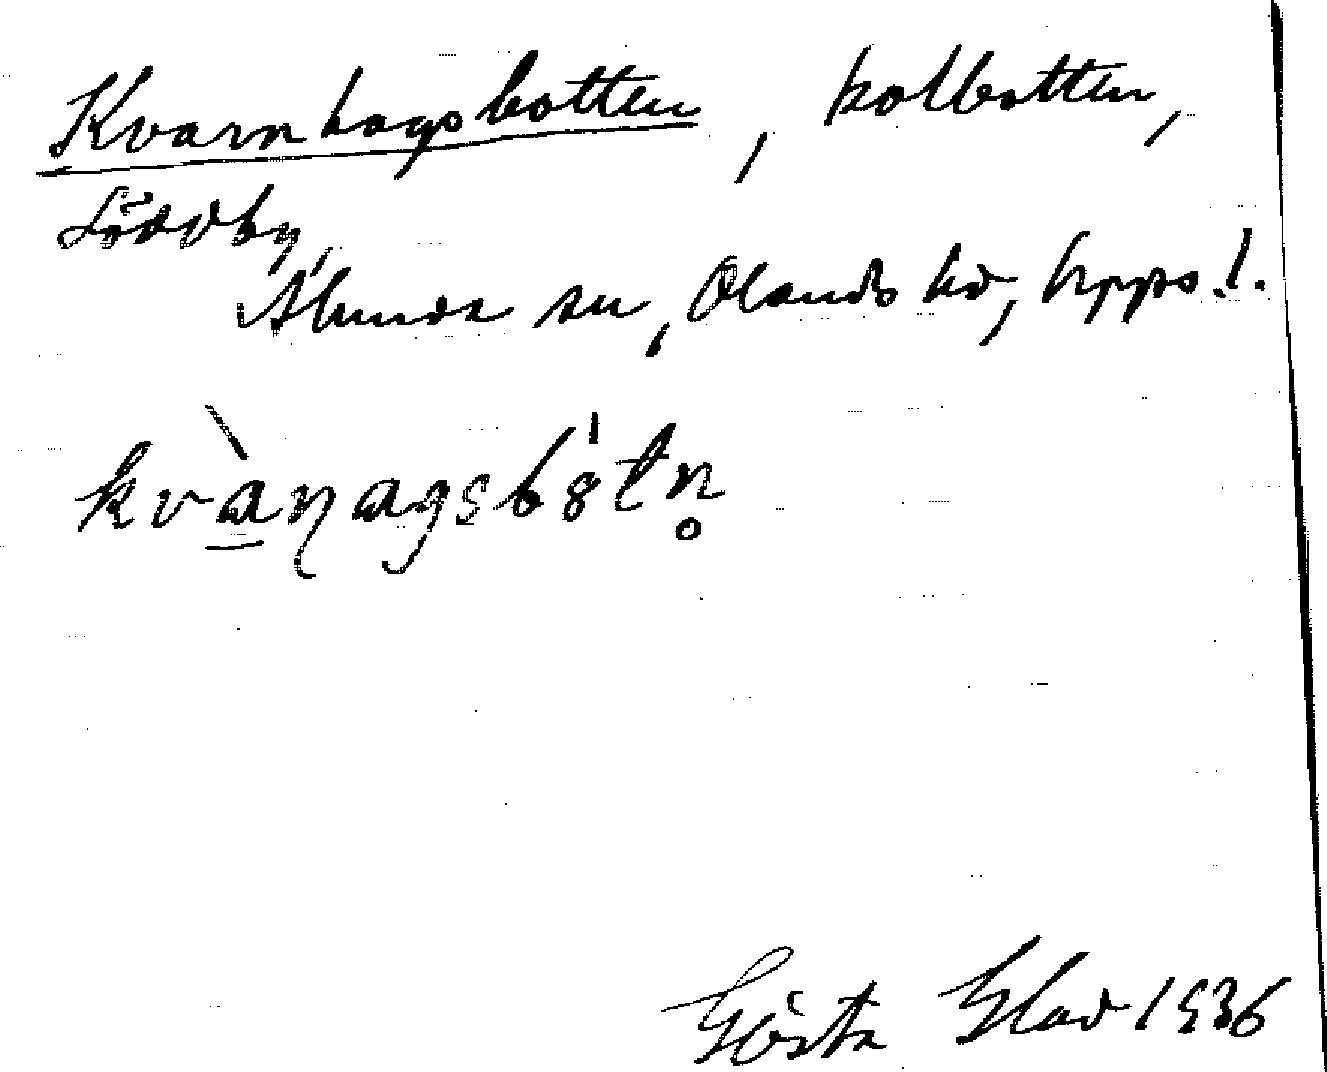 Kvarnhagsbotten, kolbotten,
Söderby,
Alunda sn, Olands hd, Upps. l.
kvàn̥agsbòtn̥
Gösta Glad 1936